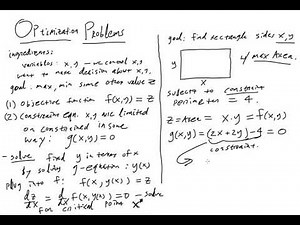 Optimization Problems
ingredients:
variables: x, y — we control x, y
want to make decision about x, y.
goal: max, min some other value z
(1) Objective function f(x,y) = z
(2) Constraint eqn. x, y are limited
or constrained in some
way: g(x,y) = 0
- solve find y in terms of x
by solving g-equation: y(x)
plug into f: f(x, y(x)) = z
dz/dx = d/dx f(x, y(x)) = 0 - solve
for critical point x*
goal: find rectangle sides x, y
y
x
max Area.
subject to constraint
perimeter = 4.
z = Area = x·y = f(x,y)
g(x,y) = (2x + 2y) - 4 = 0
constraint.